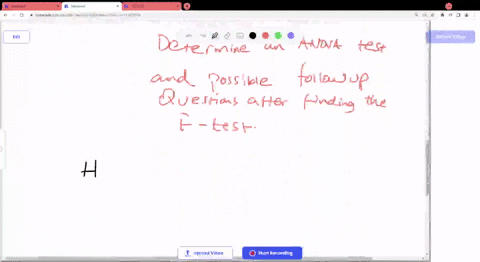 Determine an ANOVA test
and possible followup
Questions after finding the
F-test.
H
Upload Video
Start Recording